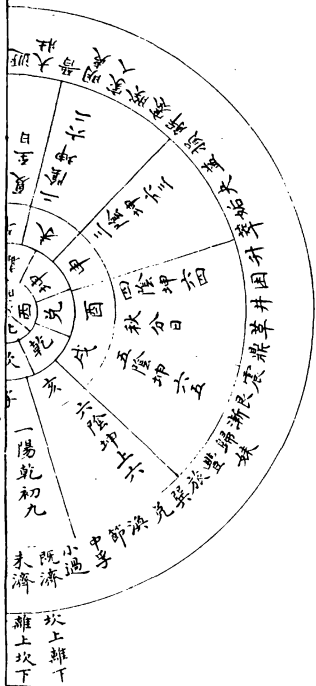 大壯
晉
明夷
家人
睽
蹇
解
損
益
夬
姤
萃
升
困
井
革
鼎
震
艮
漸
歸妹
豐
旅
巽
兌
渙
節
中孚
小過
既濟
未濟
夏至日
二陰坤六二
三陰坤六三
四陰坤六四
秋分日
五陰坤六五
六陰坤上六
一陽乾初九
未
申
酉
戌
亥
坤
兌
乾
西
坎上離下
離上坎下